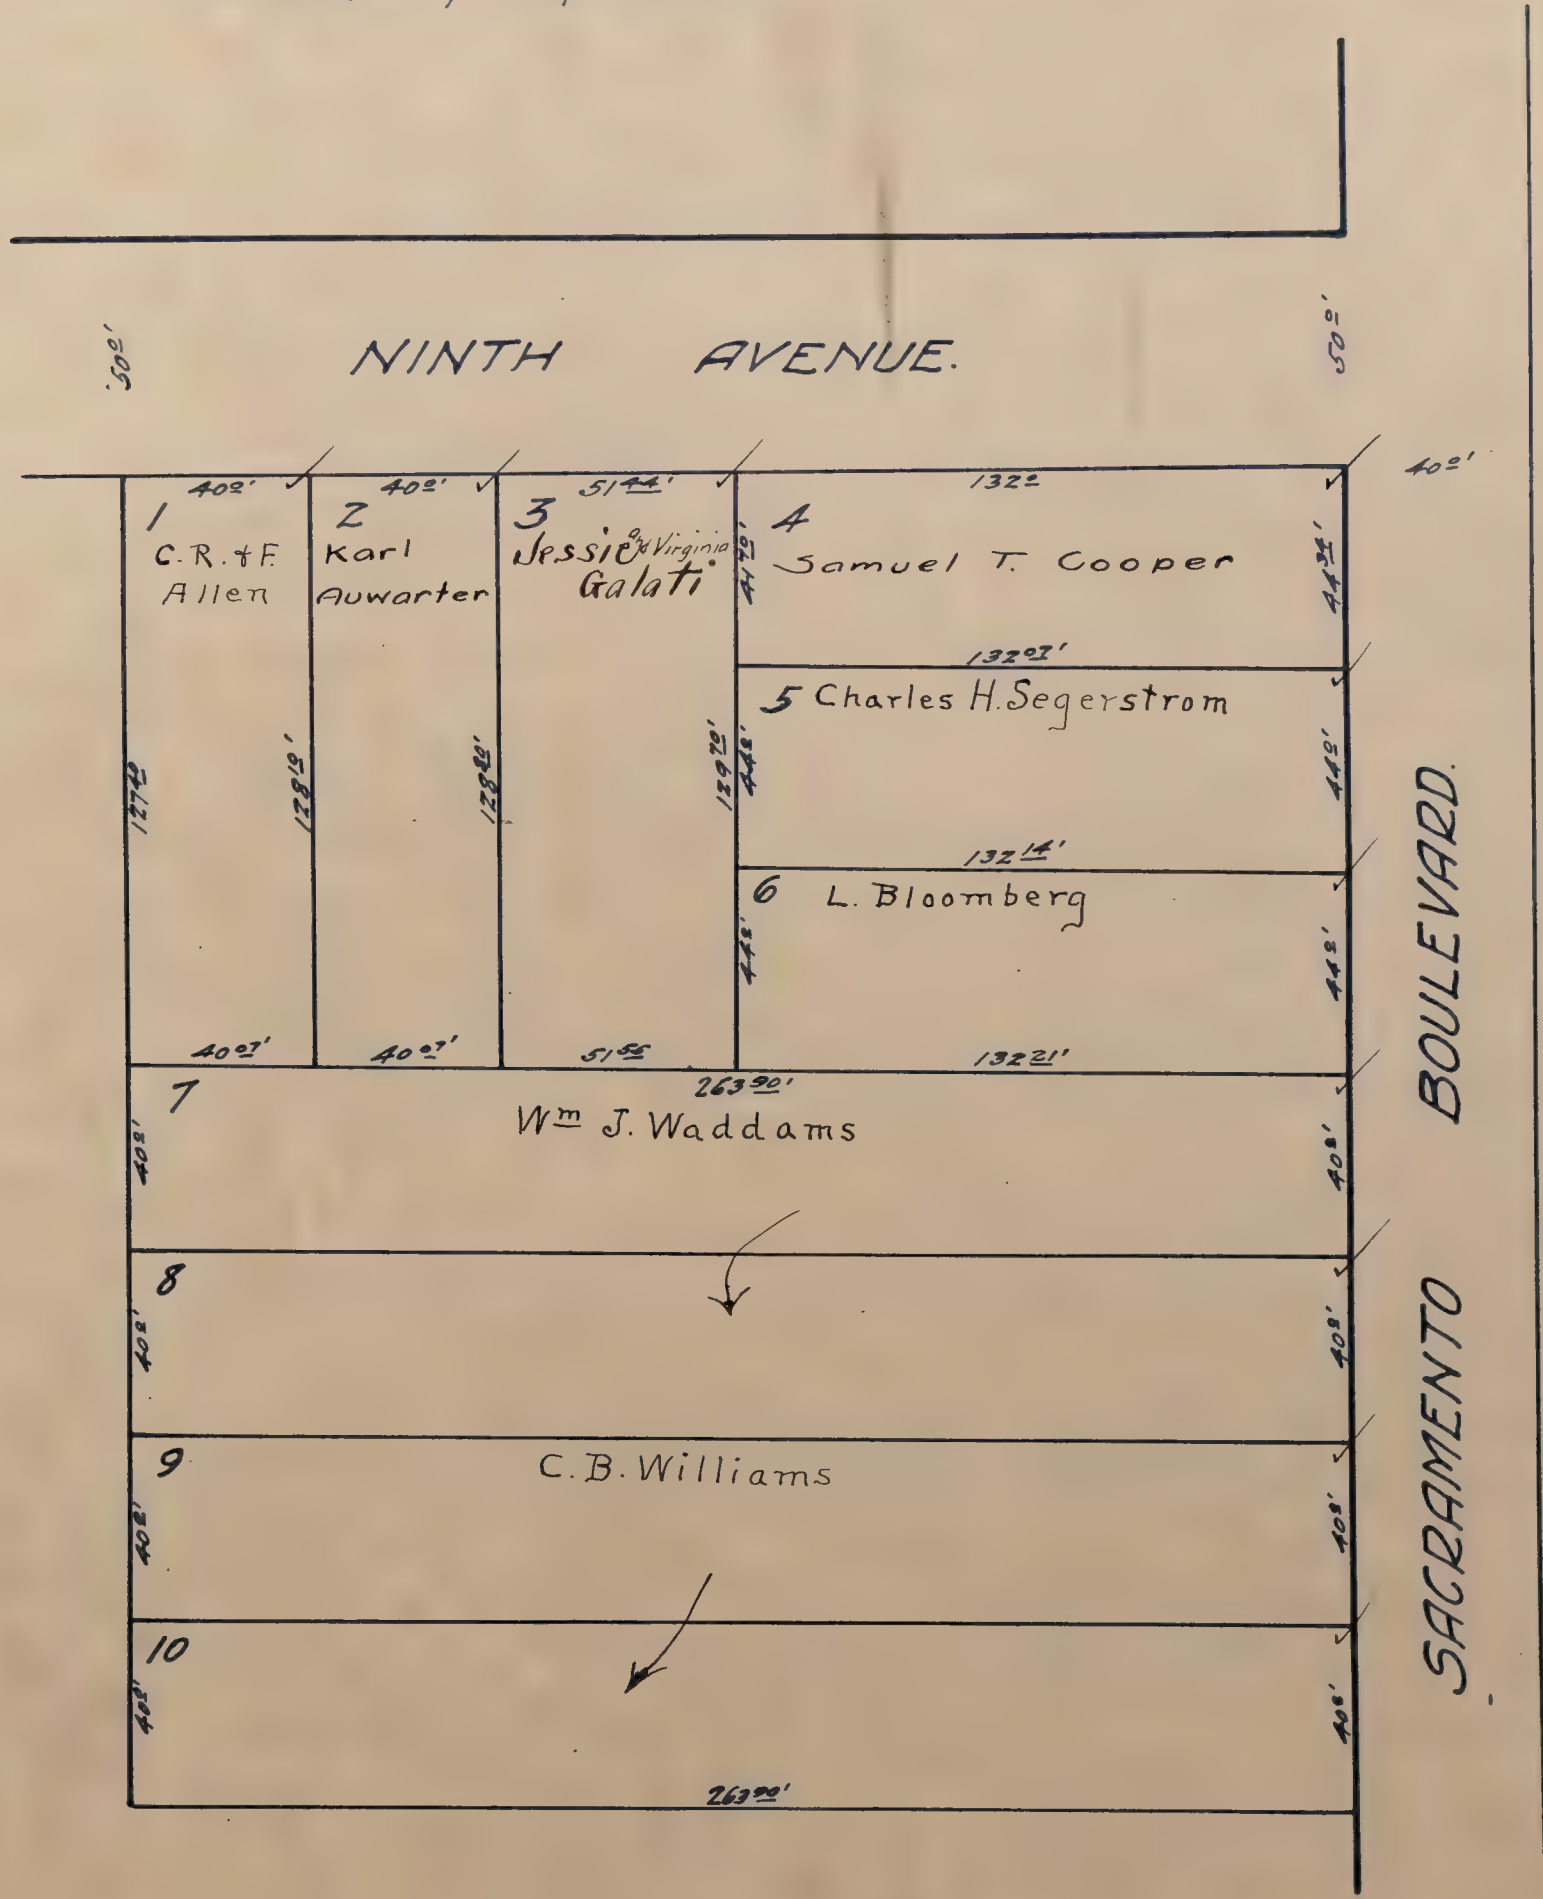 50⁰'
50⁰'
NINTH AVENUE.
40⁰'
40⁰'
40⁰'
51⁴⁴'
132⁰
1
C. R. & F.
Allen
2
Karl
Auwarter
3
Jessie and Virginia
Galati
4
Samuel T. Cooper
44³⁴'
132⁰⁷'
5 Charles H. Segerstrom
127⁴⁰
128¹⁰'
128⁸⁰'
129⁷⁰'
44⁰'
44⁰'
132¹⁴'
6 L. Bloomberg
44⁰'
44⁰'
40⁰⁷'
40⁰⁷'
51⁵⁵
132²¹'
7
263⁹⁰'
Wm J. Waddams
40⁰'
40⁰'
8
40⁰'
40⁰'
9
C. B. Williams
40⁰'
40⁰'
10
40⁰'
40⁰'
263⁹⁰'
SACRAMENTO BOULEVARD.